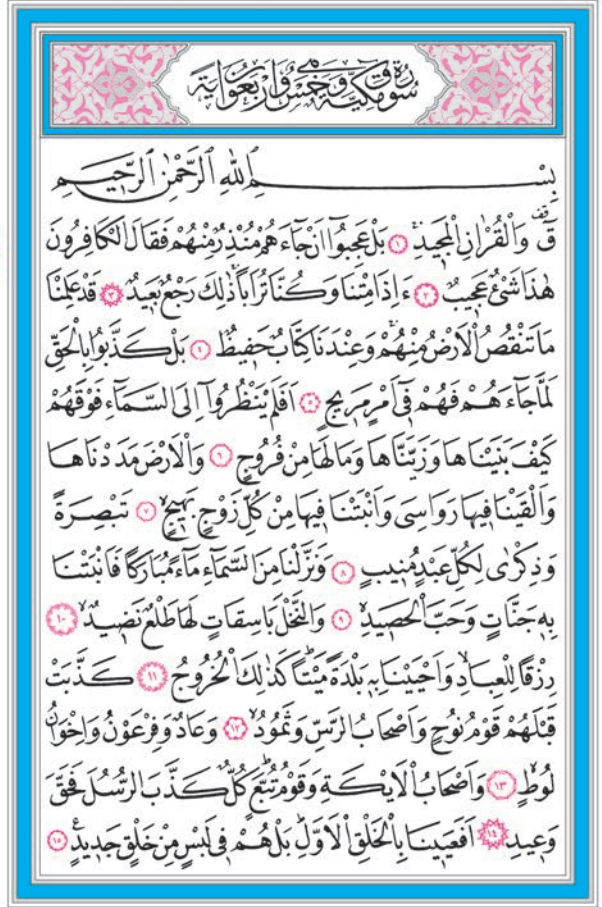 سُورَةُ قٓ مَكِّيَّةٌ وَهِيَ خَمْسٌ وَاَرْبَعُونَ اٰيَةً
بِسْمِ اللّٰهِ الرَّحْمٰنِ الرَّحٖيمِ
قٓ وَالْقُرْاٰنِ الْمَجٖيدِۚ ﴿١﴾ بَلْ عَجِبُٓوا اَنْ جَٓاءَهُمْ مُنْذِرٌ مِنْهُمْ فَقَالَ الْكَافِرُونَ
هٰذَا شَيْءٌ عَجٖيبٌۚ ﴿٢﴾ ءَاِذَا مِتْنَا وَكُنَّا تُرَاباًۚ ذٰلِكَ رَجْعٌ بَعٖيدٌ ﴿٣﴾ قَدْ عَلِمْنَا
مَا تَنْقُصُ الْاَرْضُ مِنْهُمْۚ وَعِنْدَنَا كِتَابٌ حَفٖيظٌ ﴿٤﴾ بَلْ كَذَّبُوا بِالْحَقِّ
لَمَّا جَٓاءَهُمْ فَهُمْ فٖٓي اَمْرٍ مَرٖيجٍ ﴿٥﴾ اَفَلَمْ يَنْظُرُٓوا اِلَى السَّمَٓاءِ فَوْقَهُمْ
كَيْفَ بَنَيْنَاهَا وَزَيَّنَّاهَا وَمَا لَهَا مِنْ فُرُوجٍ ﴿٦﴾ وَالْاَرْضَ مَدَدْنَاهَا
وَاَلْقَيْنَا فٖيهَا رَوَاسِيَ وَاَنْبَتْنَا فٖيهَا مِنْ كُلِّ زَوْجٍ بَهٖيجٍۙ ﴿٧﴾ تَبْصِرَةً
وَذِكْرٰى لِكُلِّ عَبْدٍ مُنٖيبٍ ﴿٨﴾ وَنَزَّلْنَا مِنَ السَّمَٓاءِ مَٓاءً مُبَارَكاً فَاَنْبَتْنَا
بِهٖ جَنَّاتٍ وَحَبَّ الْحَصٖيدِۙ ﴿٩﴾ وَالنَّخْلَ بَاسِقَاتٍ لَهَا طَلْعٌ نَضٖيدٌۙ ﴿١٠﴾
رِزْقاً لِلْعِبَادِۙ وَاَحْيَيْنَا بِهٖ بَلْدَةً مَيْتاًۜ كَذٰلِكَ الْخُرُوجُ ﴿١١﴾ كَذَّبَتْ
قَبْلَهُمْ قَوْمُ نُوحٍ وَاَصْحَابُ الرَّسِّ وَثَمُودُۙ ﴿١٢﴾ وَعَادٌ وَفِرْعَوْنُ وَاِخْوَانُ
لُوطٍۙ ﴿١٣﴾ وَاَصْحَابُ الْاَيْكَةِ وَقَوْمُ تُبَّعٍۜ كُلٌّ كَذَّبَ الرُّسُلَ فَحَقَّ
وَعٖيدِ ﴿١٤﴾ اَفَعَيٖينَا بِالْخَلْقِ الْاَوَّلِۜ بَلْ هُمْ فٖي لَبْسٍ مِنْ خَلْقٍ جَدٖيدٍ ﴿١٥﴾